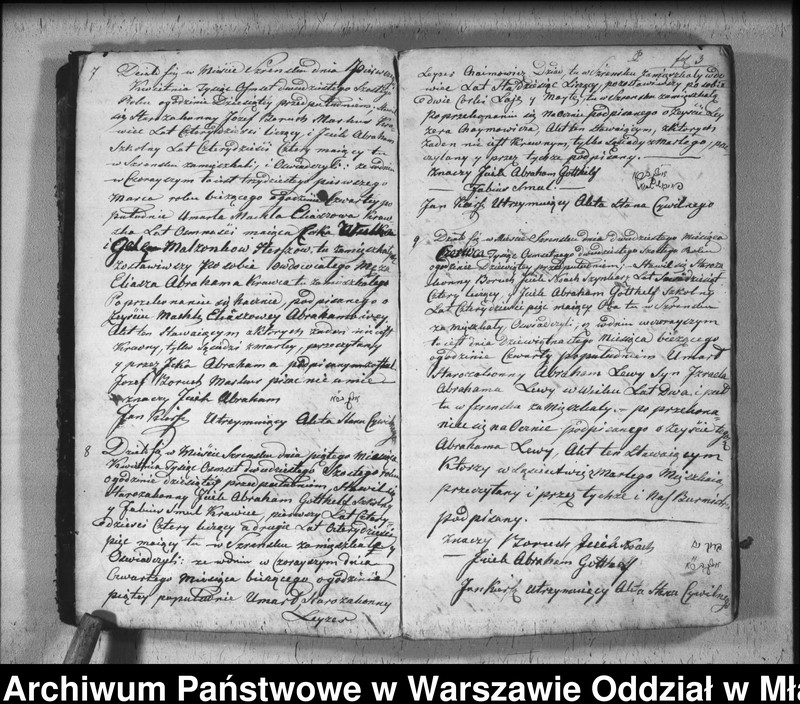 7 Działo się w Mieście Szrensku dnia Pierwszego
Kwietnia Tysiąc Osmset dwudziestego Szostego
Roku o godzinie Dziesiątej przed południem, Stawili
się Starozakonny Josef Boruch Maskus Kra-
wiec Lat Czterdzieści liczący i Jcek Abraham
Szkolny Lat Czterdzieści Cztery maiący t-
w Szrensku zamięszkali; i Oświadczyli: że w dniu
w Czorayszym to iest trzydziestego pierwszego
Marca roku bieżącego o godzinie Czwarty po
południe Umarła Machla Eliaszowa Kraw-
czka Lat Osmności maiąca Corka
i Malzonkow tu zamięszkał
zostawiwszy po sobie Owdowiałego Męża
Eliasza Abrahama Krawca tu zamięszkałego
Po przekonaniu się naocznie, podpisanego o
zeyściu Machli Eliaszowey Abrahamowiczy
Akt ten Stawaiącym z których żaden nie iest
Krewny, tylko Sąsiedzi zmarły, przeczytany
y przez Jcka Abrahama podpisany został
Josef Boruch Maskus pisać nie umie
znaczy Jcek Abraham
Jan Utrzymuiący Akta Stanu Cywilnego
8 Działo się w Mieście Szrensku dnia piątego Miesiąca
Kwietnia Tysiąc Osmset dwudziestego Szostego Roku
o godzinie dziesiątej przed południem, Stawili się
Starozakonny Jcek Abraham Gotthelf Szkolny
y Fabiss Smul Krawiec, pierwszy Lat Czter-
dzieści Cztery liczący a drugi Lat Czterdzieści
pięć maiący tu w Szrensku zamięszkali y
Oświadczyli: że w dniu w czorayszym dnia
Czwartego Miesiąca bieżącego o godzinie
piątey popołudnie Umarł Starozakonny
Leyzer
3
Leyzer Chaimowicz Dziad tu w Szrensku zamięszkały wdo-
wiec Lat Siedziesiąt Liczący, pozostawiwszy po sobie
dwie Corki Łaje y Maytę, tu w Szrensku zamięszkałe
po przekonaniu się Naocznie podpisanego o Zeyściu Ley-
zera Chaymowicza, Akt ten stawaiącym, z których
żaden nie iest Krewnym, tylko Sąsiady zmarłego, prze-
czytany y przez tychże podpisany.
znaczy Jcek Abraham Gotthelf
Fabiss Smul
Jan Utrzymuiący Akta Stanu Cywilnego
9 Działo się w Mieście Szrensku dnia dwudziestego Miesiąca
Tysiąc Osmsetnego dwudziestego Szostego Roku
o godzinie Dziewiątey przed południem, Stawili się Staroza-
konny Boruch Jcek Noach Szynkarz Lat
Cztery liczący, y Jcek Abraham Gotthelf Szkolny
Lat Czterdzieście pięć maiący Oba tu w Szrensku
zamięszkały, Oświadczyli, iż w dniu wczorayszym
to iest dnia dziewiętnastego Miesiąca bieżącego
o godzinie Czwarty popołudniem Umarł
Starozakonny Abraham Lewy Syn Jzraela
Abrahama Lewy w Wieku Lat Dwa i pół
tu w Szrensku zamięszkały – po przekona-
niu się na Ocznie podpisanego o Zeyściu tegoż
Abrahama Lewy, Akt ten Stawaiącym
Ktorzy w Sąsiectwie zmarłego Mięszkaią
przeczytany i przez tychże i Nas Burmistrza
podpisany.
znaczy Boruch Jcek Noach
Jcek Abraham Gotthelf
Jan Utrzymuiący Akta Stanu Cywilnego
Archiwum Państwowe w Warszawie Oddział w Mła